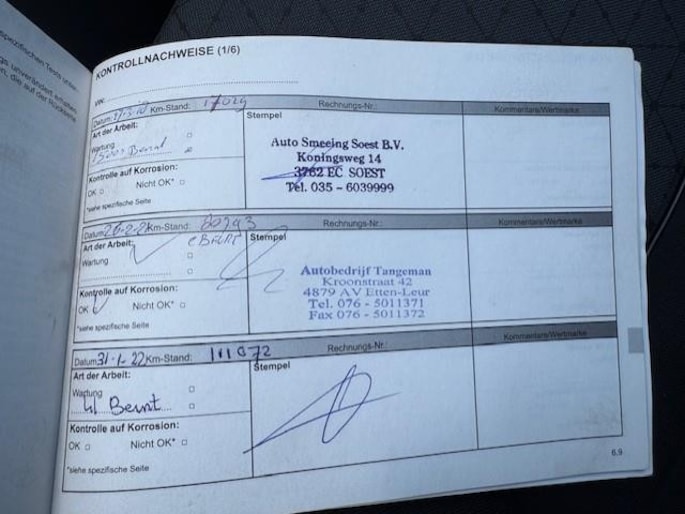 spezifischen Tests unser
gs unverändert erhalten
n, die auf der Rückseite
KONTROLLNACHWEISE (1/6)
VIN:
Datum: Km-Stand: 17029 Rechnungs-Nr.: Kommentare/Wertmarke
Art der Arbeit: Stempel
Wartung
Auto Smeeing Soest B.V.
Koningsweg 14
3762 EC SOEST
Tel. 035 - 6039999
Kontrolle auf Korrosion:
OK Nicht OK*
*siehe spezifische Seite
Datum: Km-Stand: Rechnungs-Nr.: Kommentare/Wertmarke
Art der Arbeit: Stempel
Wartung
Autobedrijf Tangeman
Kroonstraat 42
4879 AV Etten-Leur
Tel. 076 - 5011371
Fax 076 - 5011372
Kontrolle auf Korrosion:
OK Nicht OK*
*siehe spezifische Seite
Datum: 31-1-22 Km-Stand: 111072 Rechnungs-Nr.: Kommentare/Wertmarke
Art der Arbeit: Stempel
Wartung
Kontrolle auf Korrosion:
OK Nicht OK*
*siehe spezifische Seite
6.9